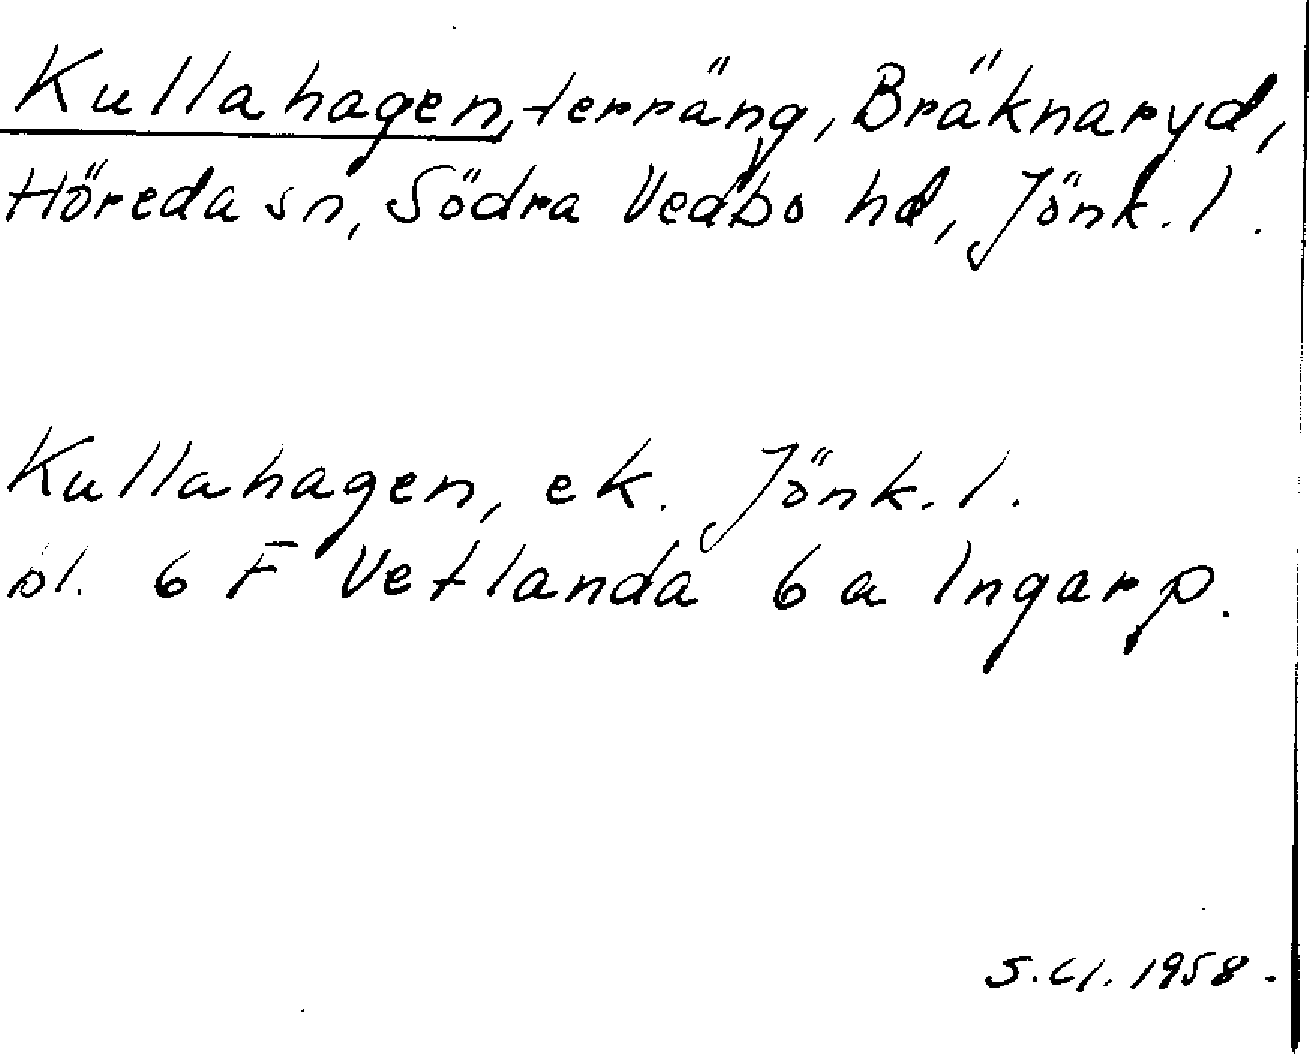 Kullahagen, terräng, Bräknaryd,
Höreda sn, Södra Vedbo hd, Jönk. l.
Kullahagen, ek. Jönk. l.
bl. 6 F Vetlanda 6 a Ingarp.
1958.